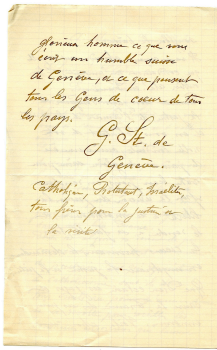 glorieux homme ce que vous
écrit un humble suisse
de Genève, et ce que pensent
tous les Gens de coeur de tous
les pays.
G. St. de
Genève.
Catholique, Protestant, Israélite,
tous frères pour la justice et
la vérité